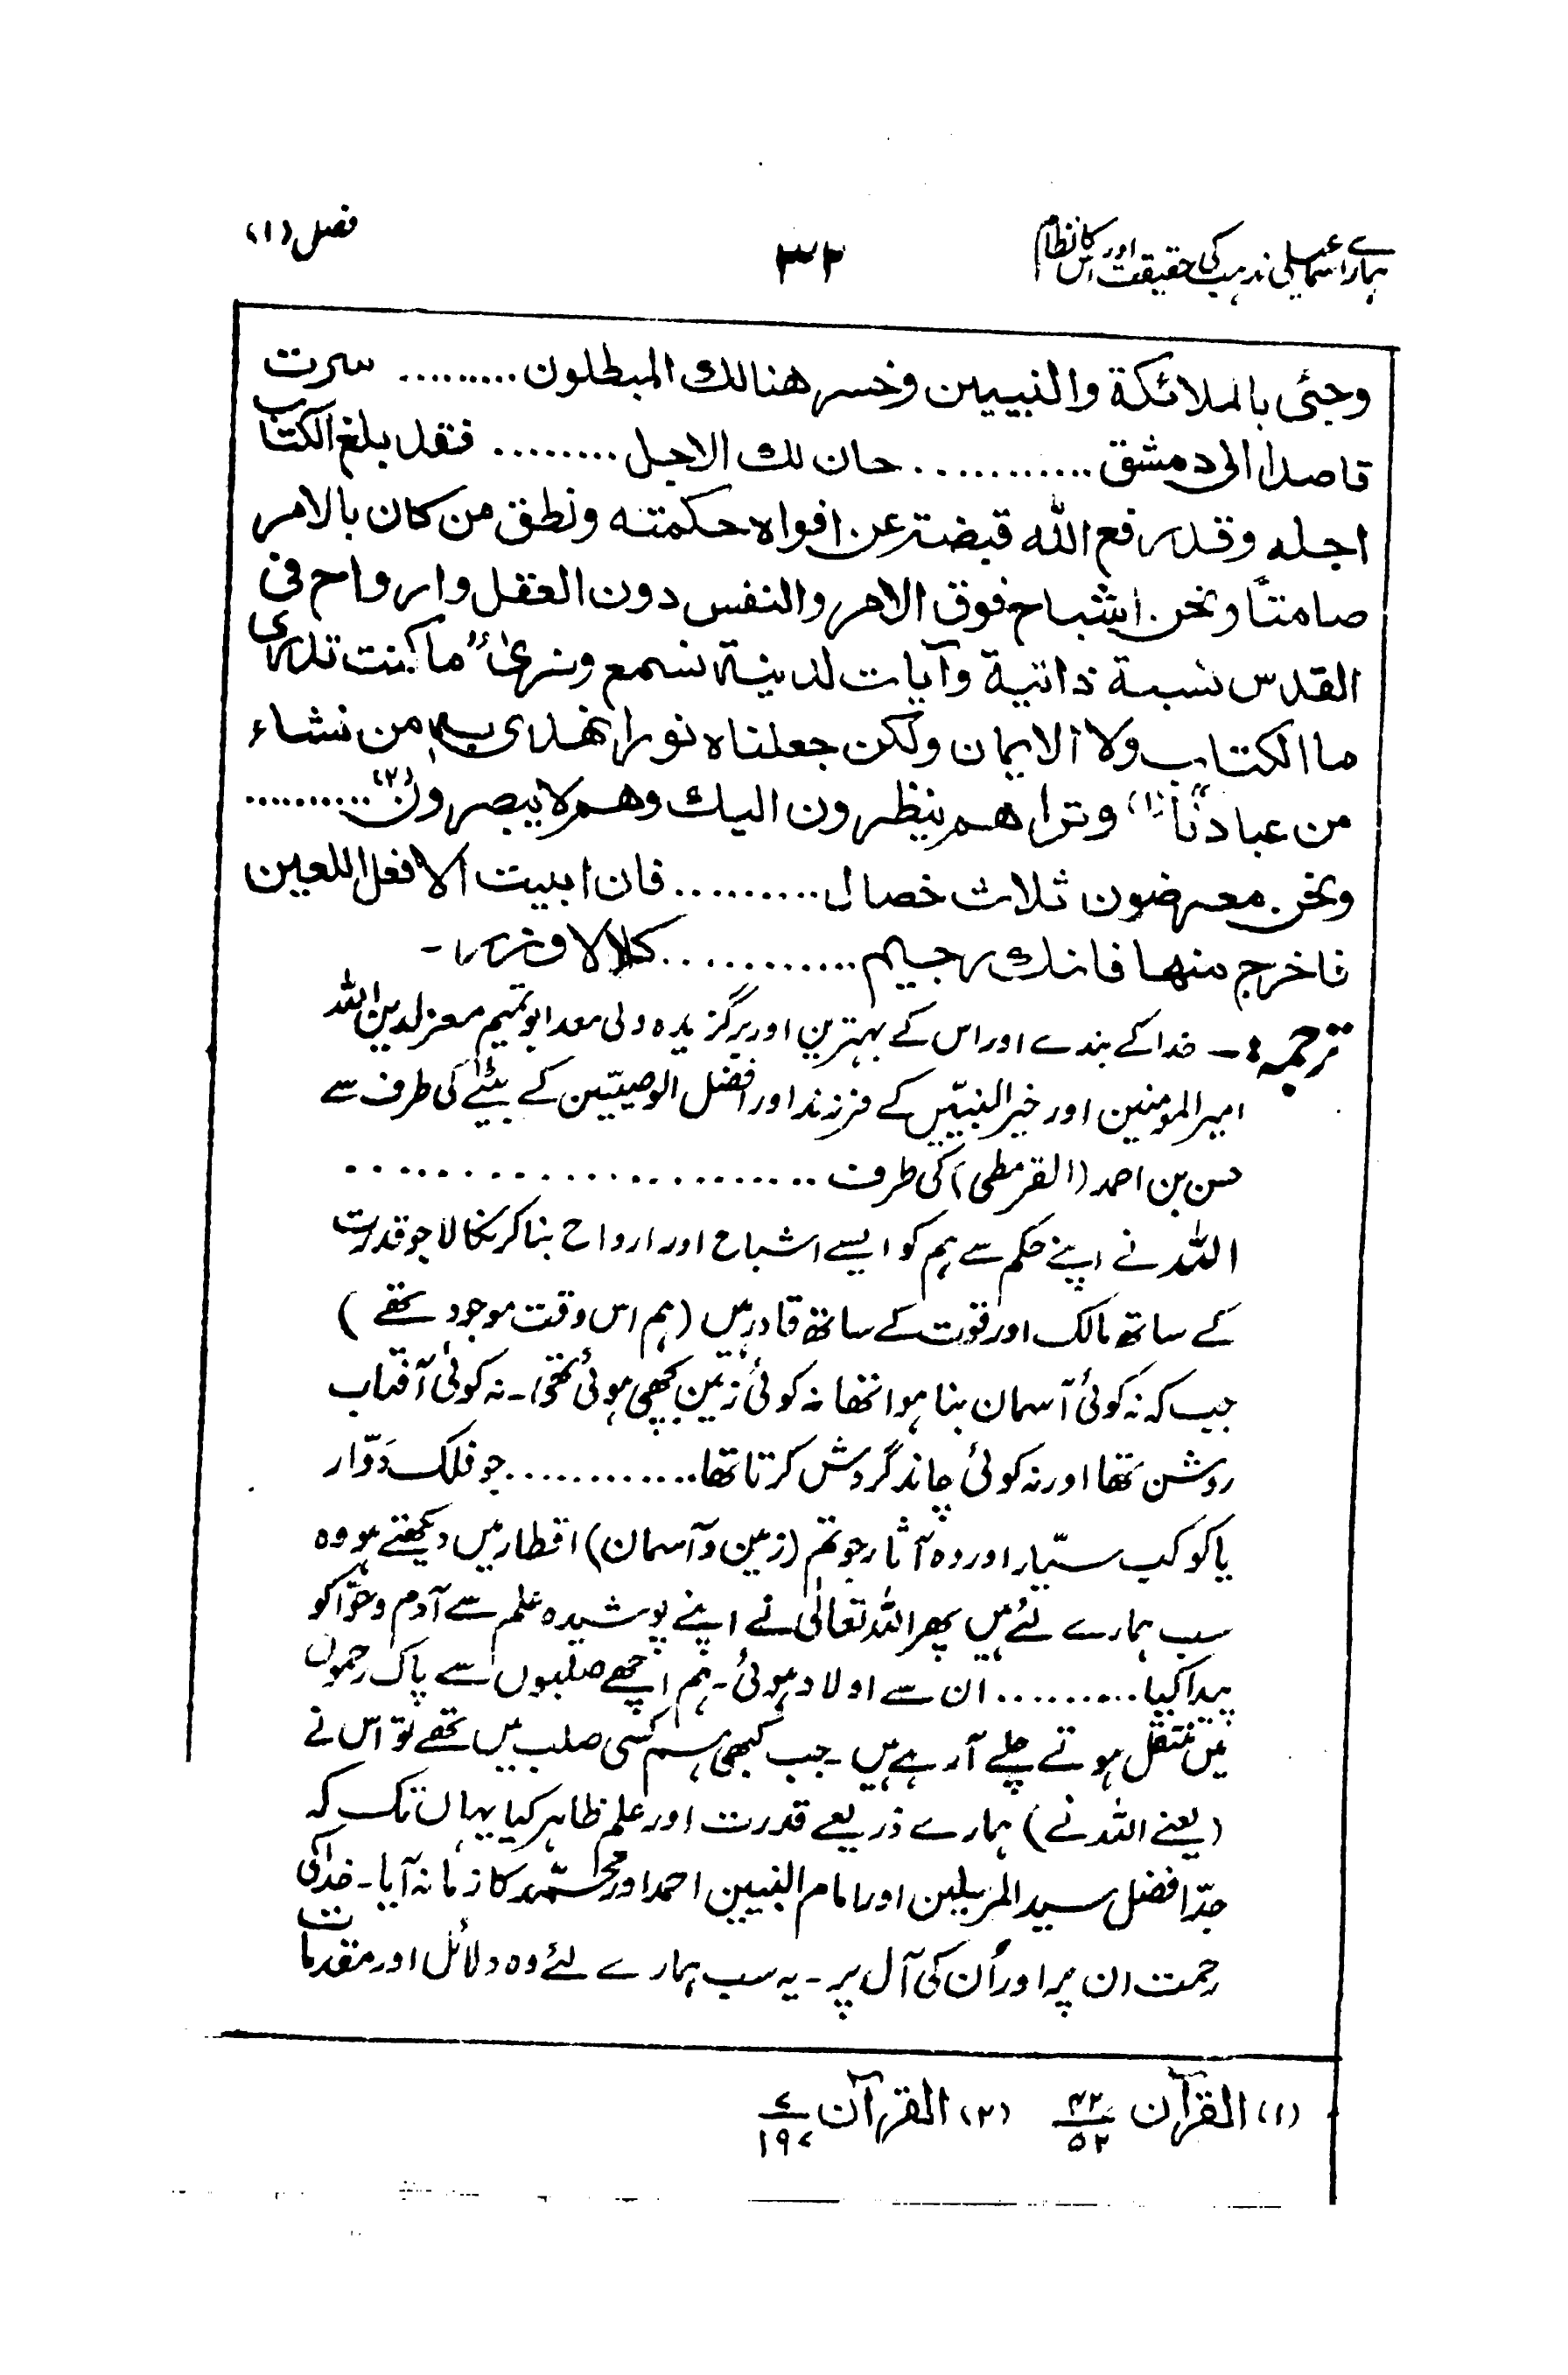 ہمارے اسماعیلی مذہب کی حقیقت اور اس کا نظام
۳۲
فصل (۱)
وجئی بالملائکة والنبیین وخسر ھنالك المبطلون......... سرت
قاصدا الی دمشق............ حان لك الاجل......... فقد بلغ الکتاب
اجله وقد رفع الله قبضته عن افواه حکمته ونطق من کان بالامر
صامتاً ونحن اشباح فوق الامر والنفس دون العقل وارواح فی
القدس نسبة ذاتیة وآیات لدینة نسمع ونریٰ "ما کنت تدری
ما الکتاب ولا الایمان ولکن جعلناه نورا نهدی به من نشاء
من عبادنا"(۱) وتراهم ینظرون الیك وهم لا یبصرون(۲)..........
ونحن معرضون ثلاث خصال.......... فان ابیت الا فعل اللعین
فاخرج منها فانك رجیم............ کلا لا وزر۔
ترجمہ:۔ خدا کے بندے اور اس کے بہترین اور برگزیدہ ولی معد ابو تمیم معز لدین اللہ
امیر المومنین اور خیر النبیّیں کے فرزند اور افضل الوصیّین کے بیٹے کی طرف سے
حسن بن احمد (القرمطی) کی طرف ......................
اللہ نے اپنے حکم سے ہم کو ایسے اشباح اور ارواح بنا کر نکالا جو قدرت
کے ساتھ مالک اور قوت کے ساتھ قادر ہیں (ہم اس وقت موجود تھے)
جب کہ نہ کوئی آسمان بنا ہوا تھا نہ کوئی زمین بچھی ہوئی تھی۔ نہ کوئی آفتاب
روشن تھا اور نہ کوئی چاند گردش کرتا تھا............ جو فلک دَوّار
یا کوکب سیّار اور وہ آثار جو تم (زمین و آسمان) اقطار میں دیکھتے ہو وہ
سب ہمارے لئے ہیں پھر اللہ تعالیٰ نے اپنے پوشیدہ علم سے آدم و حوّا کو
پیدا کیا.......... ان سے اولاد ہوئی۔ ہم اچھے صلبوں سے پاک رحموں
میں منتقل ہوتے چلے آ رہے ہیں۔ جب کبھی ہم کسی صلب میں تھے تو اس نے
(یعنے اللہ نے) ہمارے ذریعے قدرت اور علم ظاہر کیا یہاں تک کہ
جدّ افضل سید المرسلین اور امام النبیین احمد اور محمّد کا زمانہ آیا۔ خدا کی
رحمت ان پر اور اُن کی آل پر۔ یہ سب ہمارے لئے وہ دلائل اور مقدمات
(۱) القرآن ۴۲/۵۲ (۲) القرآن ۷/۱۹۷